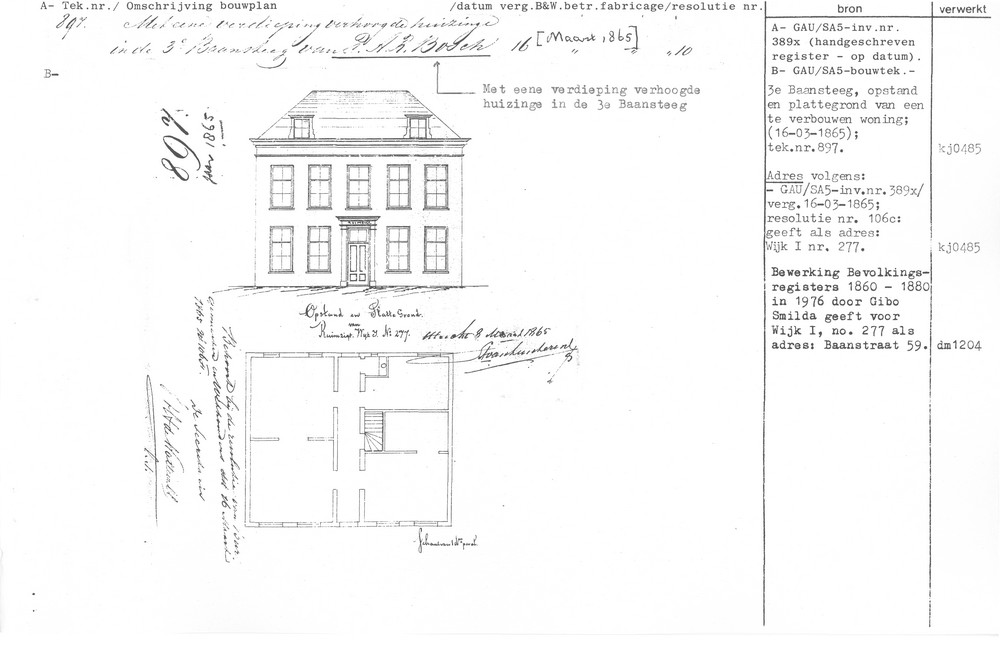 A- Tek.nr./ Omschrijving bouwplan /datum verg.B&W.betr.fabricage/resolutie nr.
bron
verwerkt
897. Met eene verdieping verhoogde huizinge
in de 3e Baansteeg van P. A. R. Bosch 16 [Maart, 1865] „ „ 10
B-
Met eene verdieping verhoogde
huizinge in de 3e Baansteeg
A- GAU/SA5-inv.nr.
389x (handgeschreven
register - op datum).
B- GAU/SA5-bouwtek.-
3e Baansteeg, opstand
en plattegrond van een
te verbouwen woning;
(16-03-1865);
tek.nr.897.
kj0485
Adres volgens:
- GAU/SA5-inv.nr.389x/
verg.16-03-1865;
resolutie nr. 106c:
geeft als adres:
Wijk I nr. 277.
kj0485
Bewerking Bevolkings-
registers 1860 - 1880
in 1976 door Gibo
Smilda geeft voor
Wijk I, no. 277 als
adres: Baanstraat 59.
dm1204
1865
Opstand en Platte Grond
van
Huizinge Wyk I. No 277.
Utrecht 8 Maart 1865
Behoort bij de resolutie van Burg.
en Wethouders der 16 Maart
1865
De Secretaris